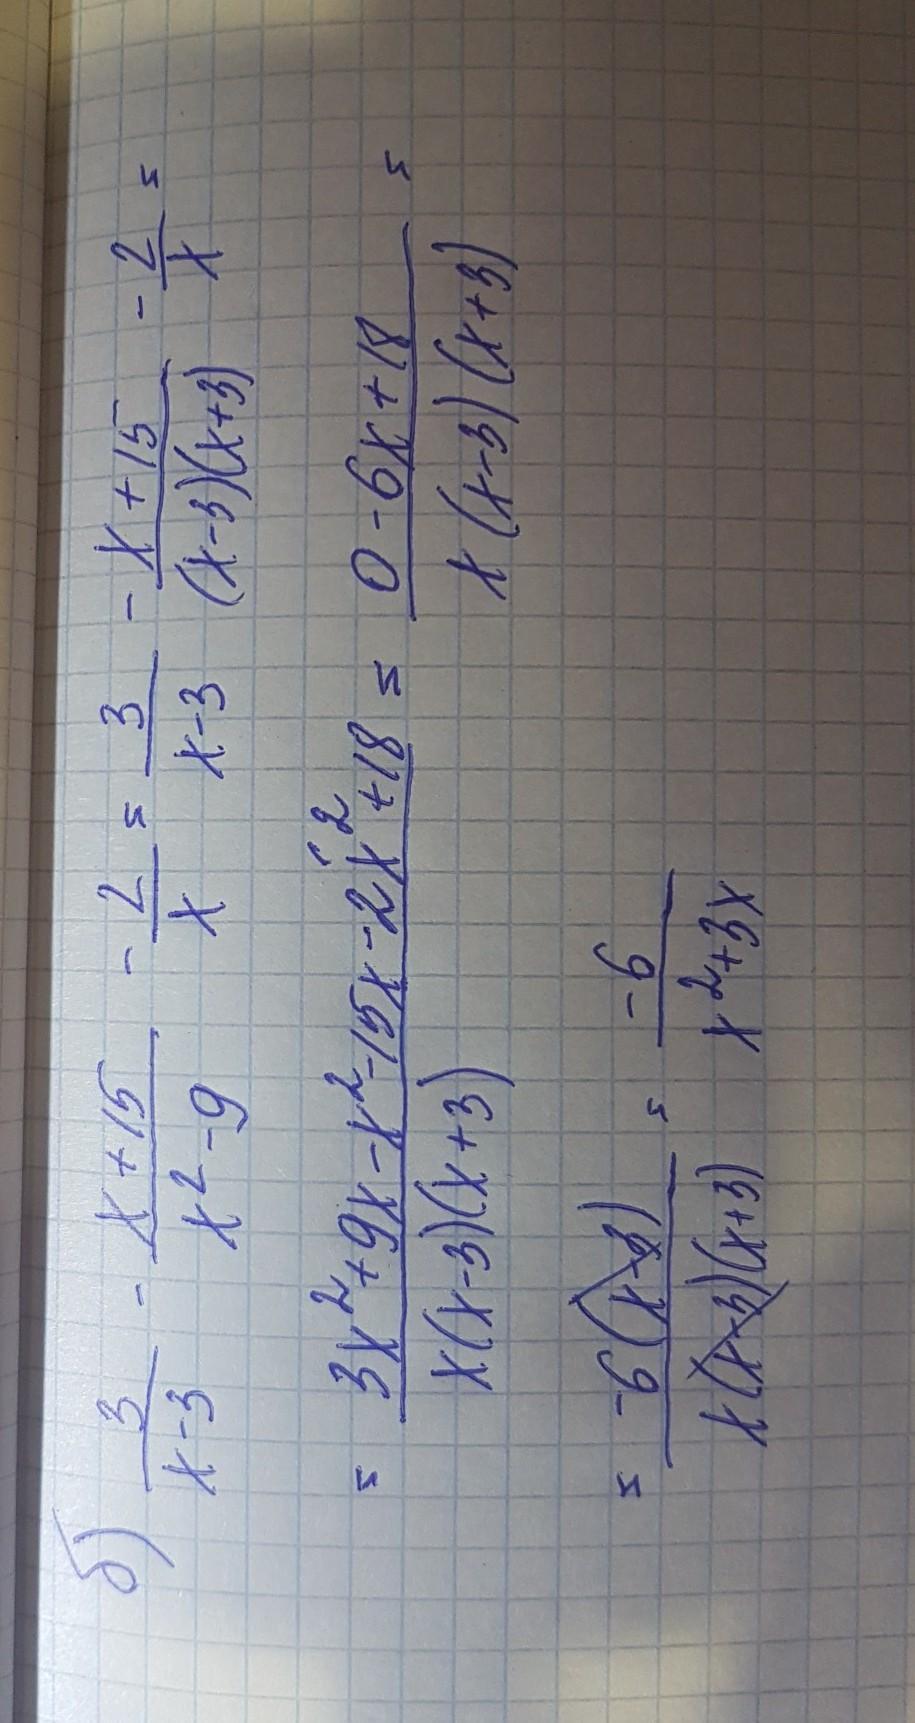 б) 3/(x-3) - (x+15)/(x²-9) - 2/x = 3/(x-3) - (x+15)/((x-3)(x+3)) - 2/x =
= (3x²+9x-x²-15x-2x²+18)/(x(x-3)(x+3)) = (0-6x+18)/(x(x-3)(x+3)) =
= -6(x-3)/(x(x-3)(x+3)) = -6/(x²+3x)